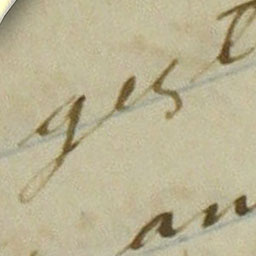 gest
an